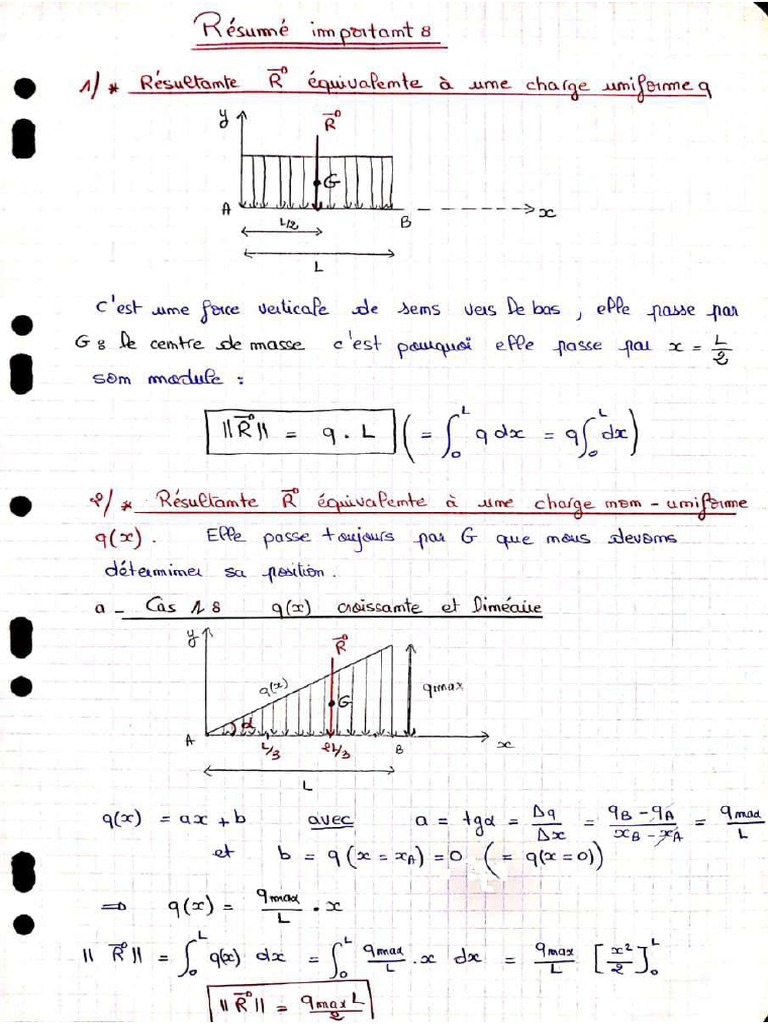 Résumé important :
1/ * Résultante R⃗ équivalente à une charge uniforme q
y
R⃗
G
A
B
x
L/2
L
c'est une force verticale de sens vers le bas, elle passe par
G : le centre de masse c'est pourquoi elle passe par x = L/2
son module :
||R⃗|| = q . L ( = ∫₀ᴸ q dx = q ∫₀ᴸ dx )
2/ * Résultante R⃗ équivalente à une charge non-uniforme
q(x). Elle passe toujours par G que nous devons
déterminer sa position.
a - Cas 1 : q(x) croissante et linéaire
y
R⃗
q(x)
G
qmax
α
A
L/3
2L/3
B
x
L
q(x) = ax + b avec a = tgα = Δq/Δx = (qB - qA)/(xB - xA) = qmax/L
et b = q(x = xA) = 0 ( = q(x=0))
⇒ q(x) = qmax/L . x
||R⃗|| = ∫₀ᴸ q(x) dx = ∫₀ᴸ qmax/L . x dx = qmax/L [x²/2]₀ᴸ
||R⃗|| = qmax L/2